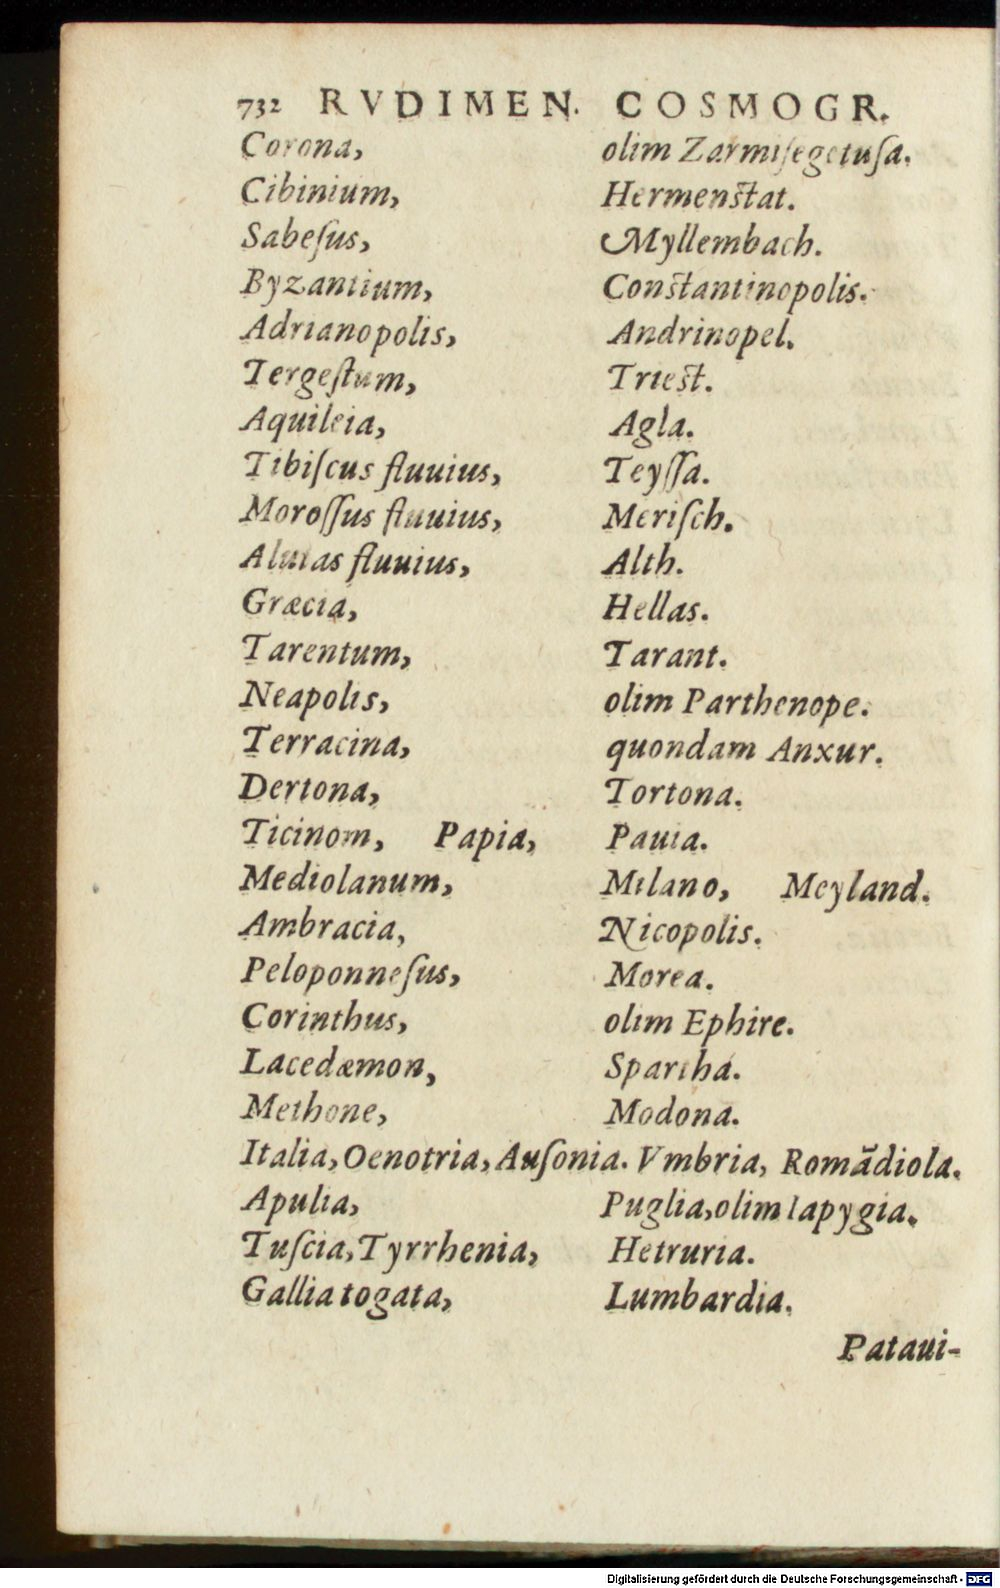 732 RVDIMEN. COSMOGR.
Corona, olim Zarmiſegetuſa.
Cibinium, Hermenſtat.
Sabeſus, Myllembach.
Byzantium, Conſtantinopolis.
Adrianopolis, Andrinopel.
Tergeſtum, Trieſt.
Aquileia, Agla.
Tibiſcus fluuius, Teyſſa.
Moroſſus fluuius, Meriſch.
Alutas fluuius, Alth.
Græcia, Hellas.
Tarentum, Tarant.
Neapolis, olim Parthenope.
Terracina, quondam Anxur.
Dertona, Tortona.
Ticinom, Papia, Pauia.
Mediolanum, Milano, Meyland.
Ambracia, Nicopolis.
Peloponneſus, Morea.
Corinthus, olim Ephire.
Lacedæmon, Spartha.
Methone, Modona.
Italia, Oenotria, Auſonia. Vmbria, Romãdiola.
Apulia, Puglia, olim Iapygia.
Tuſcia, Tyrrhenia, Hetruria.
Gallia togata, Lumbardia.
Pataui-
Digitalisierung gefördert durch die Deutsche Forschungsgemeinschaft - DFG